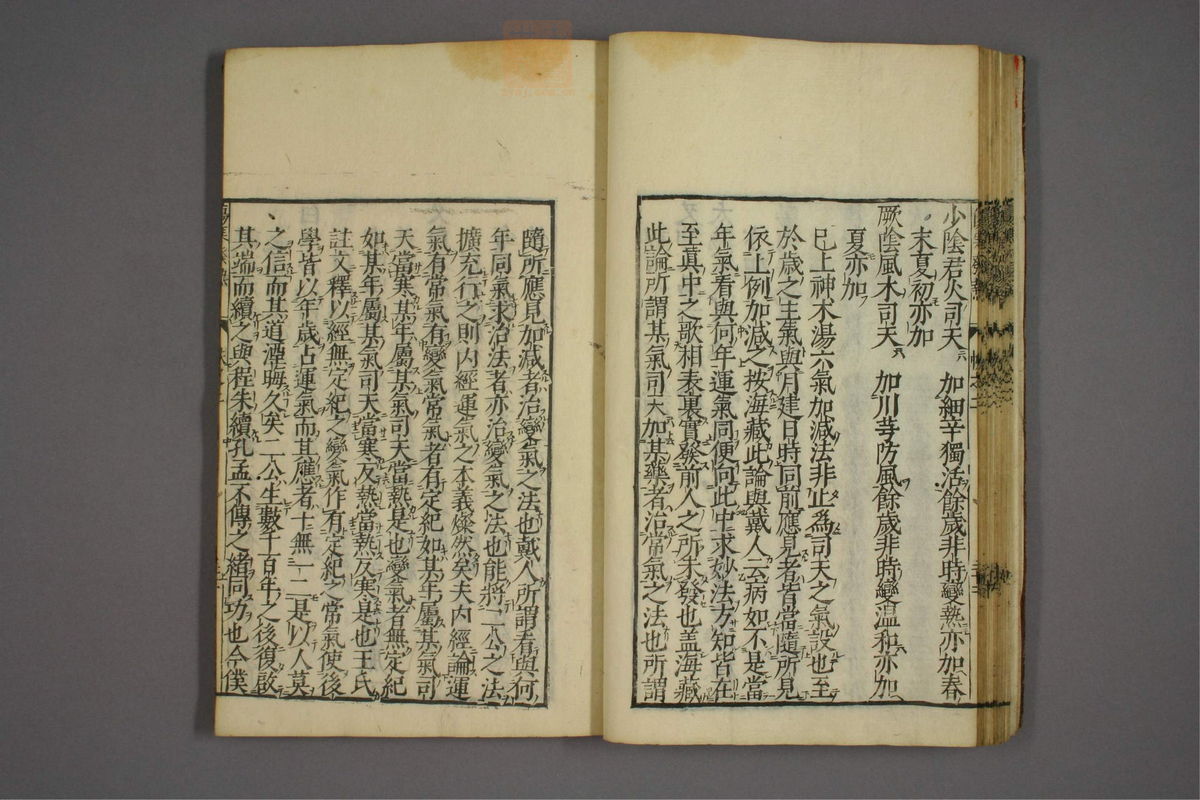 少陰君火司天 加細辛獨活餘歲非時變熱亦加春
末夏初亦加
厥陰風木司天 加川芎防風餘歲非時變温和亦加
夏亦加
已上神木湯六氣加減法非止爲司天之氣設也至
於歲之主氣與月建日時同前應見者皆當隨所見
依上例加減之按海藏此論與戴人云病如不是當
年氣看與何年運氣同便向此中求妙法方知皆在
至眞中之歌相表裏實發前人之所未發也盖海藏
此論所謂某氣司天加某藥者治常氣之法也所謂
隨所應見加減者治變氣之法也戴人所謂看與何
年同氣求治法者亦治變氣之法也能將二公之法
擴充行之則内經運氣之本義燦然矣夫内經論運
氣有常氣有變氣常氣者有定紀如某年屬某氣司
天當寒某年屬某氣司天當熱是也變氣者無定紀
如某年屬某氣司天當寒反熱當熱反寒是也王氏
註文釋以經無定紀之變氣作有定紀之常氣使後
學皆以年歲占運氣而其應者十無一二是以人莫
之信而其道湮晦久矣二公生數千百年之後復啟
其端而續之與程朱續孔孟不傳之緒同功也今僕